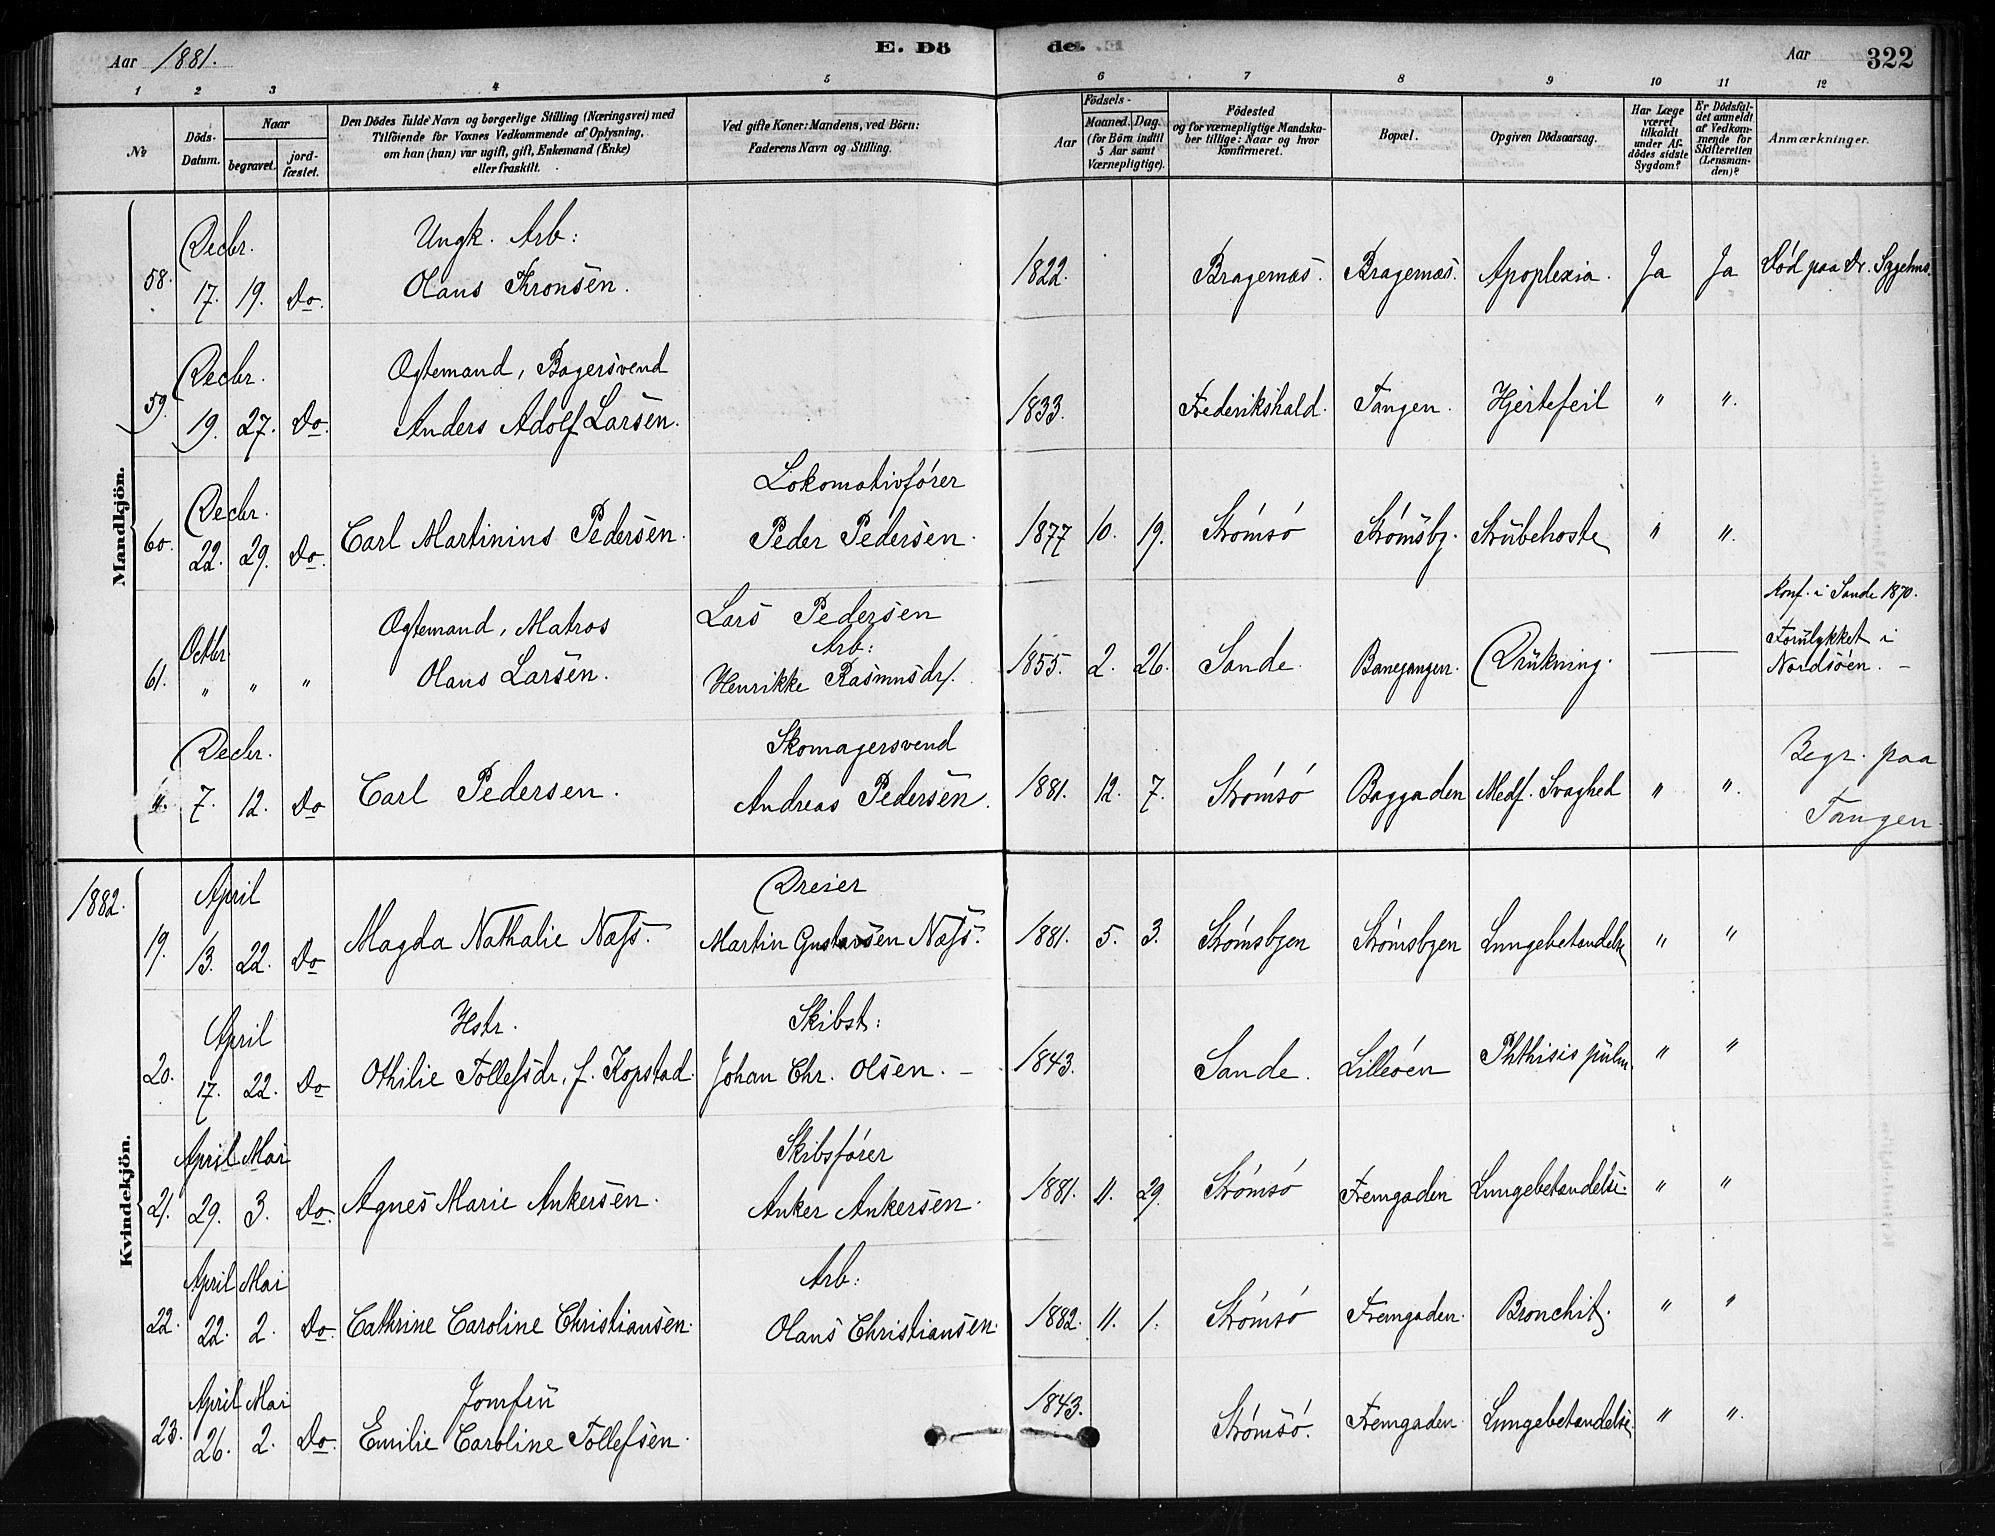 Aar 1881.
E. Dö
de.
Aar
322
1 2 3 4 5 6 7 8 9 10 11 12
No
Döds-Datum.
Naar
begravet.
jord-fæstet.
Den Dödes fulde Navn og borgerlige Stilling (Næringsvei) med
Tilföiende for Voxnes Vedkommende af Oplysning,
om han (hun) var ugift, gift, Enkemand (Enke)
eller fraskilt.
Ved gifte Koner: Mandens, ved Börn:
Faderens Navn og Stilling.
Födsels-
Aar
Maaned. Dag.
(for Börn indtil
5 Aar samt
Værnepligtige).
Födested
og for værnepligtige Mandska-
ber tillige: Naar og hvor
konfirmeret.
Bopæl.
Opgiven Dödsaarsag.
Har Læge
været
tilkaldt
under Af-
dödes sidste
Sygdom?
Er Dödsfal-
det anmeldt
af Vedkom-
mende for
Skifteretten
(Lensman-
den)?
Anmærkninger.
Mandkjön.
Decbr. Ungk. Arb:
58. 17. 19. Do. Olaus Thronsen. 1822. Bragernæs. Bragernæs. Apoplexia. Ja Ja Död paa Dr. Sygehus.
Decbr. Ægtemand, Bagersvend
59. 19. 27. Do. Anders Adolf Larsen. 1833. Frederikshald. Tangen. Hjertefeil " ".
Decbr. Lokomotivfører
60. 22. 29. Do. Carl Martinius Pedersen. Peder Pedersen. 1877 10. 19. Strömsö Strömsby. Strubehoste " ".
Konf. i Sande 1870.
Octbr Ægtemand, Matros Lars Pedersen Arb: Forulykket i
61. " " " Olaus Larsen. Henrikke Rasmusdr. 1855. 2. 26. Sande. Banegangen. Drukning. — Nordsöen. —
Decbr. Skomagersvend Begr. paa
7. 12. Do Carl Pedersen. Andreas Pedersen. 1881. 12. 7. Strömsö Baggaden Medf. Svaghed " ". Tangen.
1882.
Kvindekjön.
April Dreier
19. 13. 22. Do Magda Nathalie Næss. Martin Gustavsen Næss. 1881. 5. 3. Strömsbyen Strömsbyen Lungebetændelse " "
April Hstr. Skibst:
20. 17. 22. Do Othilie Tollefsdr. f. Kopstad. Johan Chr. Olsen. — 1843. Sande. Lilleöen Phthisis pulm. " "
April Mai Skibsfører
21. 29. 3. Do. Agnes Marie Ankersen. Anker Ankersen. 1881. 11. 29. Strömsö Fremgaden Lungebetændelse. " "
April Mai Arb:
22. 22. 2. Do. Cathrine Caroline Christiansen. Olaus Christiansen. 1882. 11. 1. Strömsö Fremgaden. Bronchit. " "
April Mai Jomfru
23. 26. 2. Do. Emilie Caroline Tollefsen. 1843. Strömsö. Fremgaden. Lungebetændelse " ".